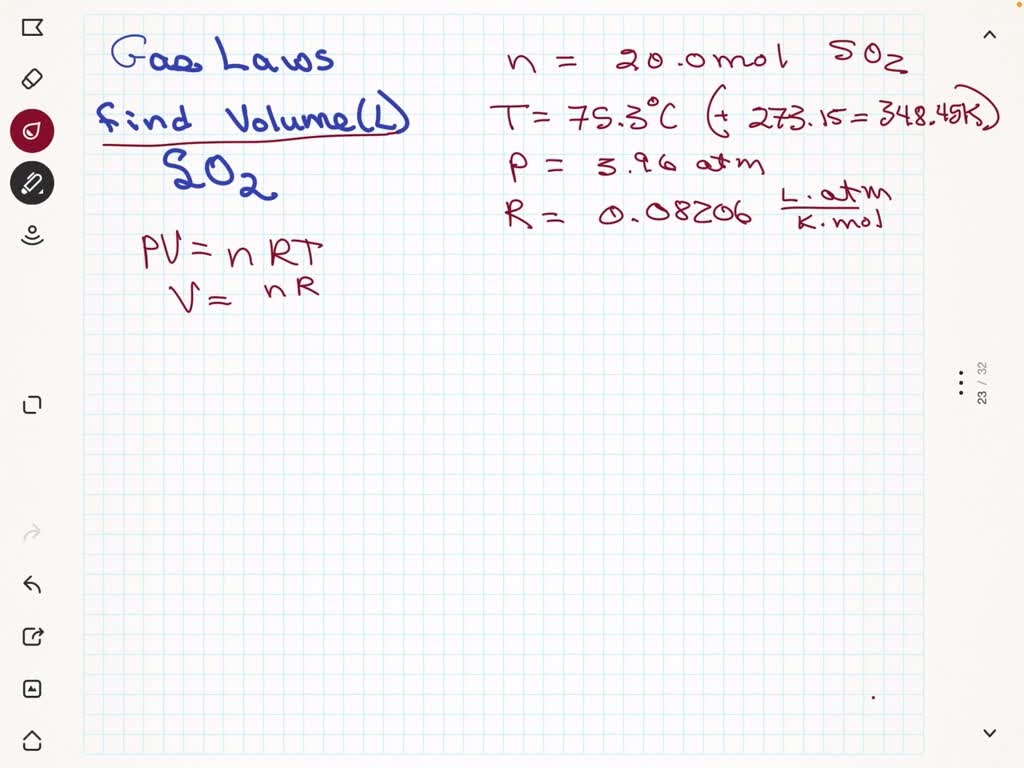 Gas Laws
find Volume(L)
SO2
PV = nRT
V = nR
n = 20.0mol SO2
T = 75.3°C (+ 273.15 = 348.45K)
P = 3.96 atm
R = 0.08206 L.atm
K.mol
23 / 32